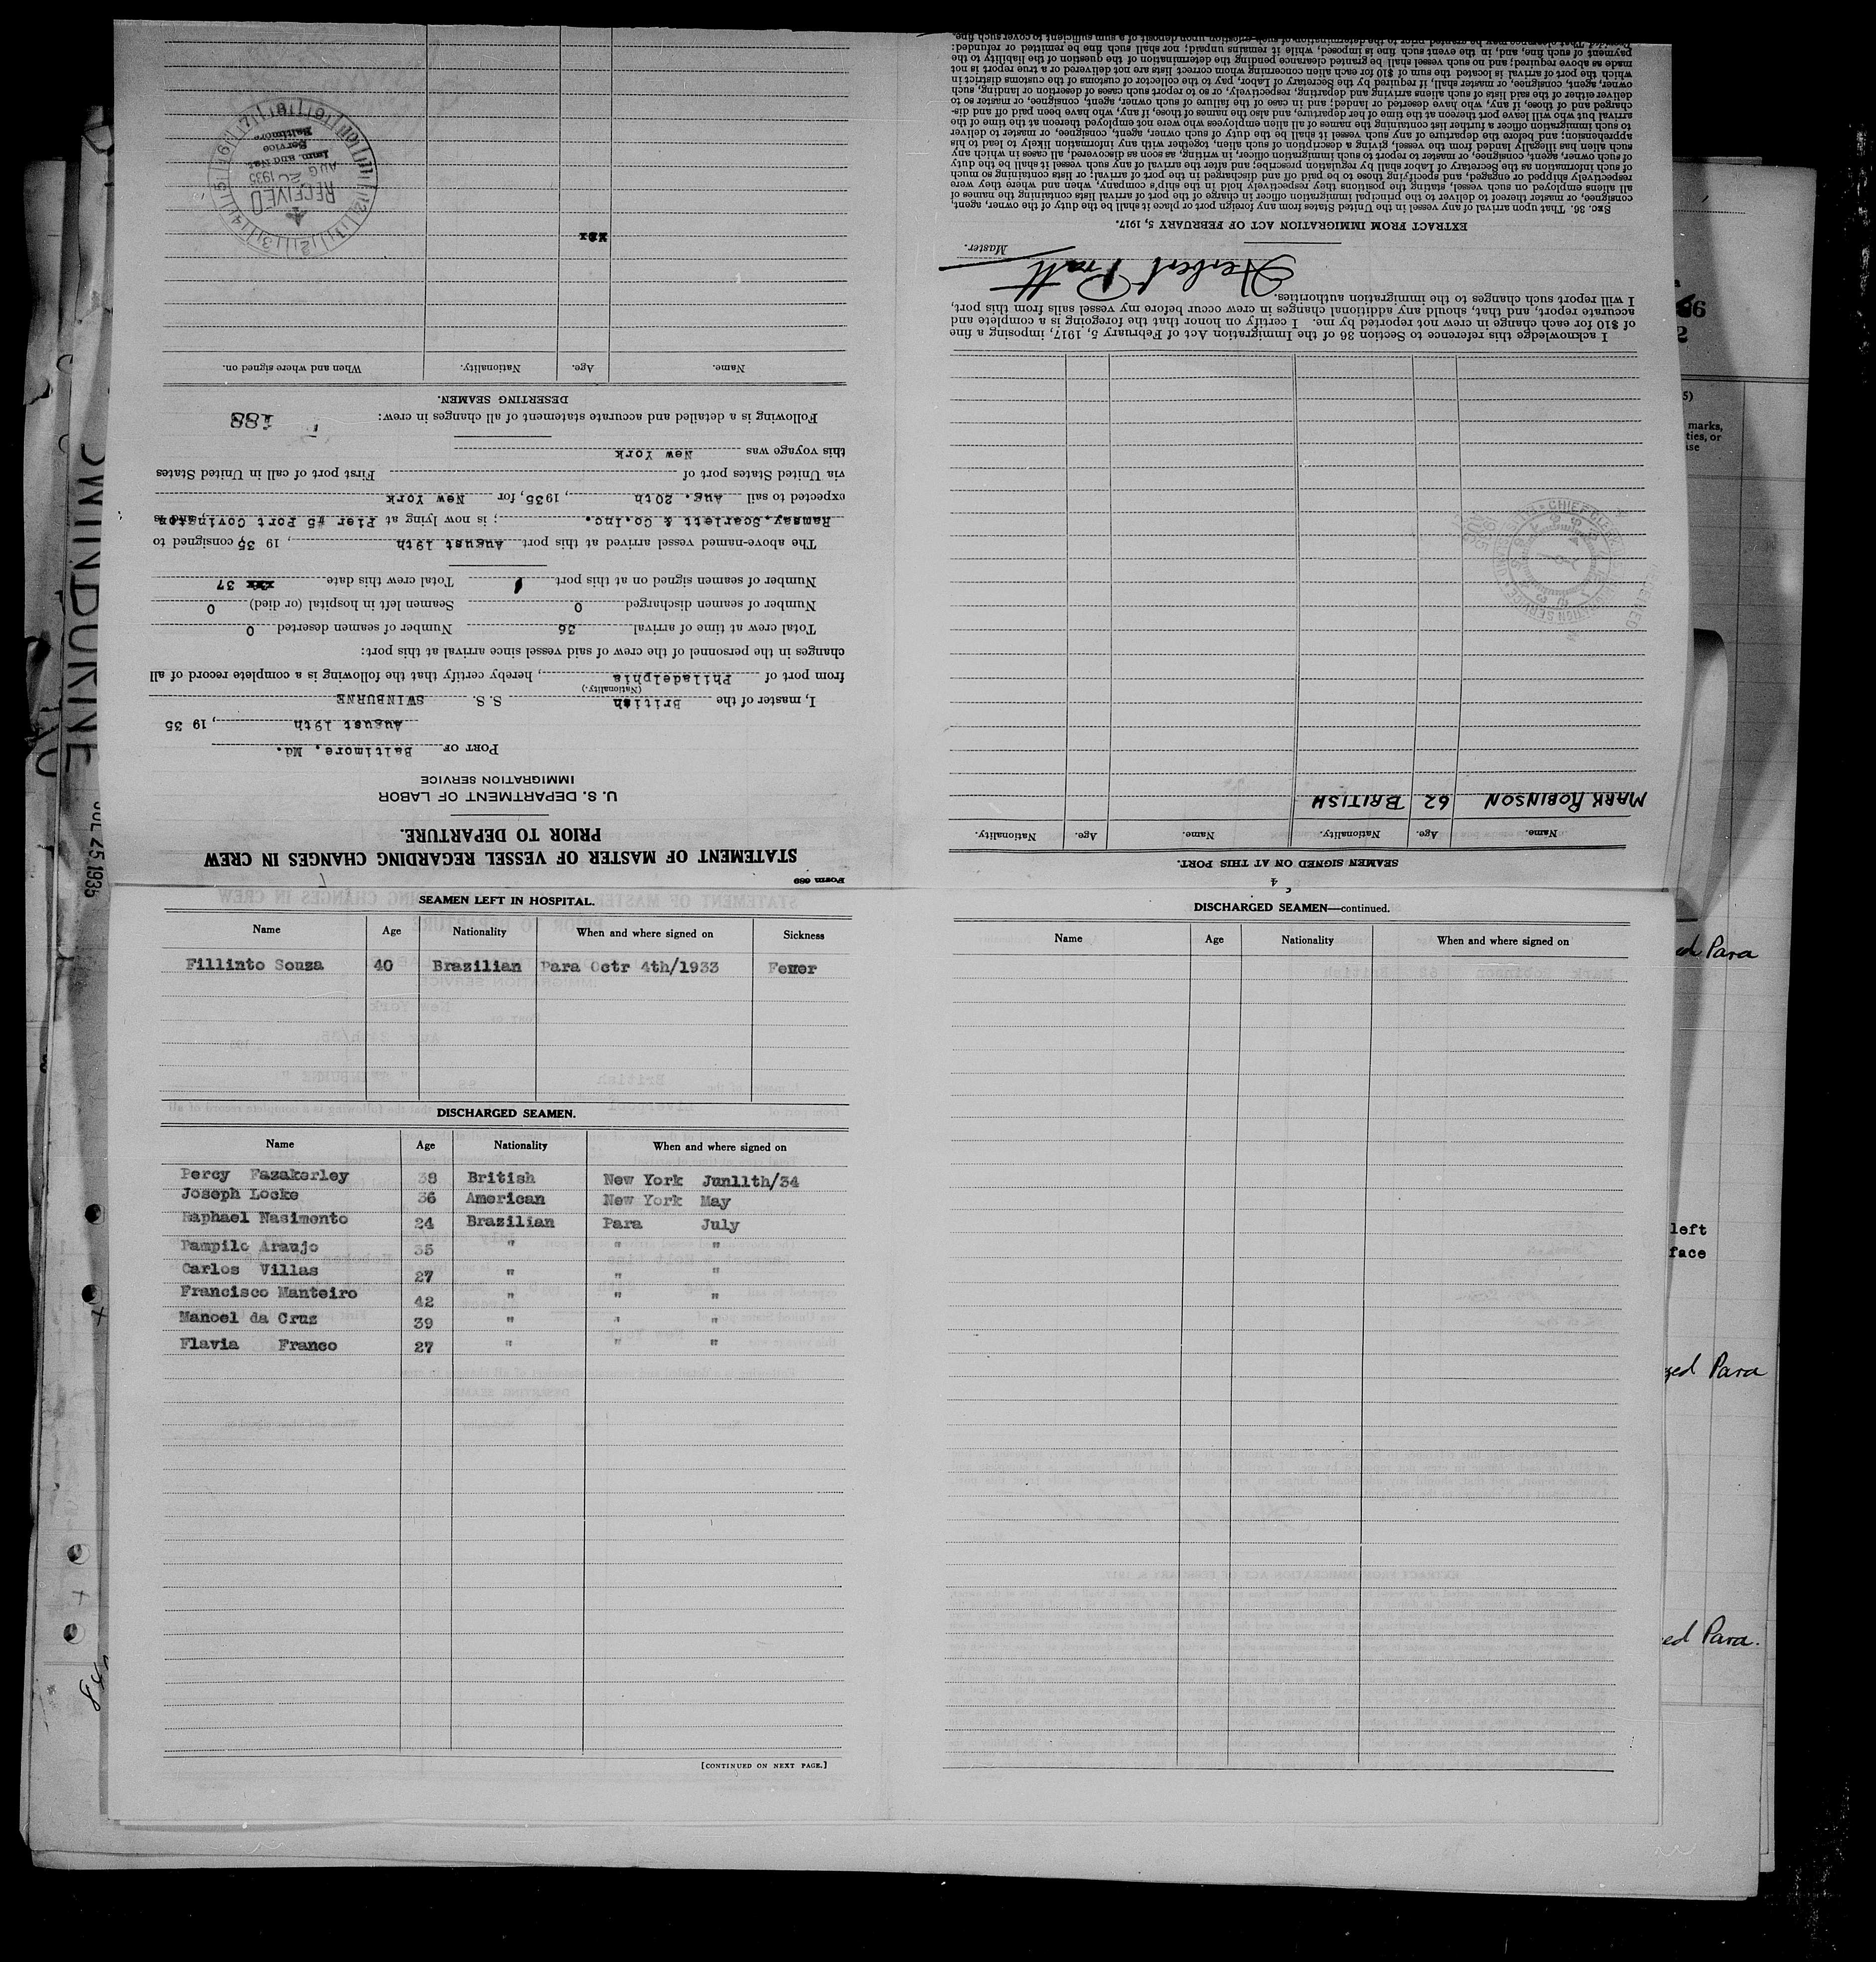 Form 689
STATEMENT OF MASTER OF VESSEL REGARDING CHANGES IN CREW
PRIOR TO DEPARTURE.
U. S. DEPARTMENT OF LABOR
IMMIGRATION SERVICE
PORT OF Baltimore, Md.
August 19th, 19 35
I, master of the British S. S. SWINBURNE
(Nationality.)
from port of Philadelphia, hereby certify that the following is a complete record of all
changes in the personnel of the crew of said vessel since arrival at this port:
Total crew at time of arrival 36 Number of seamen deserted 0
Number of seamen discharged 0 Seamen left in hospital (or died) 0
Number of seamen signed on at this port 1 Total crew this date 37
The above-named vessel arrived at this port August 19th, 19 35 consigned to
Ramsay, Scarlett & Co.Inc. ; is now lying at Pier #5 Port Covington, and is
expected to sail Aug. 20th, 1935, for New York
via United States port of First port of call in United States
this voyage was New York
Following is a detailed and accurate statement of all changes in crew:
188
DESERTING SEAMEN.
Name. Age. Nationality. When and where signed on.
xxx
RECEIVED
AUG 20 1935
Imm. and Nat.
Service
Baltimore
SEAMEN SIGNED ON AT THIS PORT.
Name. Age. Nationality. Name. Age. Nationality.
MARK ROBINSON 62 BRITISH
I acknowledge this reference to Section 36 of the Immigration Act of February 5, 1917, imposing a fine
of $10 for each change in crew not reported by me. I certify on honor that the foregoing is a complete and
accurate report, and that, should any additional changes in crew occur before my vessel sails from this port,
I will report such changes to the immigration authorities.
Herbert Pratt
Master.
EXTRACT FROM IMMIGRATION ACT OF FEBRUARY 5, 1917.
SEC. 36. That upon arrival of any vessel in the United States from any foreign port or place it shall be the duty of the owner, agent,
consignee, or master thereof to deliver to the principal immigration officer in charge of the port of arrival lists containing the names of
all aliens employed on such vessel, stating the positions they respectively hold in the ship's company, when and where they were
respectively shipped or engaged, and specifying those to be paid off and discharged in the port of arrival; or lists containing so much
of such information as the Secretary of Labor shall by regulation prescribe; and after the arrival of any such vessel it shall be the duty
of such owner, agent, consignee, or master to report to such immigration officer, in writing, as soon as discovered, all cases in which any
such alien has illegally landed from the vessel, giving a description of such alien, together with any information likely to lead to his
apprehension; and before the departure of any such vessel it shall be the duty of such owner, agent, consignee, or master to deliver
to such immigration officer a further list containing the names of all alien employees who were not employed thereon at the time of the
arrival but who will leave port thereon at the time of her departure, and also the names of those, if any, who have been paid off and dis-
charged and of those, if any, who have deserted or landed; and in case of the failure of such owner, agent, consignee, or master so to
deliver either of the said lists of such aliens arriving and departing, respectively, or so to report such cases of desertion or landing, such
owner, agent, consignee, or master shall, if required by the Secretary of Labor, pay to the collector of customs of the customs district in
which the port of arrival is located the sum of $10 for each alien concerning whom correct lists are not delivered or a true report is not
made as above required; and no such vessel shall be granted clearance pending the determination of the question of the liability to the
payment of such fine, and, in the event such fine is imposed, while it remains unpaid; nor shall such fine be remitted or refunded:
SEAMEN LEFT IN HOSPITAL.
Name Age Nationality When and where signed on Sickness
Fillinto Souza 40 Brazilian Para Octr 4th/1933 Fever
DISCHARGED SEAMEN.
Name Age Nationality When and where signed on
Percy Fazakerley 38 British New York Jun11th/34
Joseph Locke 36 American New York May
Raphael Nasimento 24 Brazilian Para July
Pampilo Araujo 35 " " "
Carlos Villas 27 " " "
Francisco Manteiro 42 " " "
Manoel da Cruz 39 " " "
Flavia Franco 27 " " "
[CONTINUED ON NEXT PAGE.]
DISCHARGED SEAMEN—continued.
Name Age Nationality When and where signed on
SWINBURNE
JUL 25 1935
marks,
ties, or
ed Para
left
face
ged Para
ed Para.